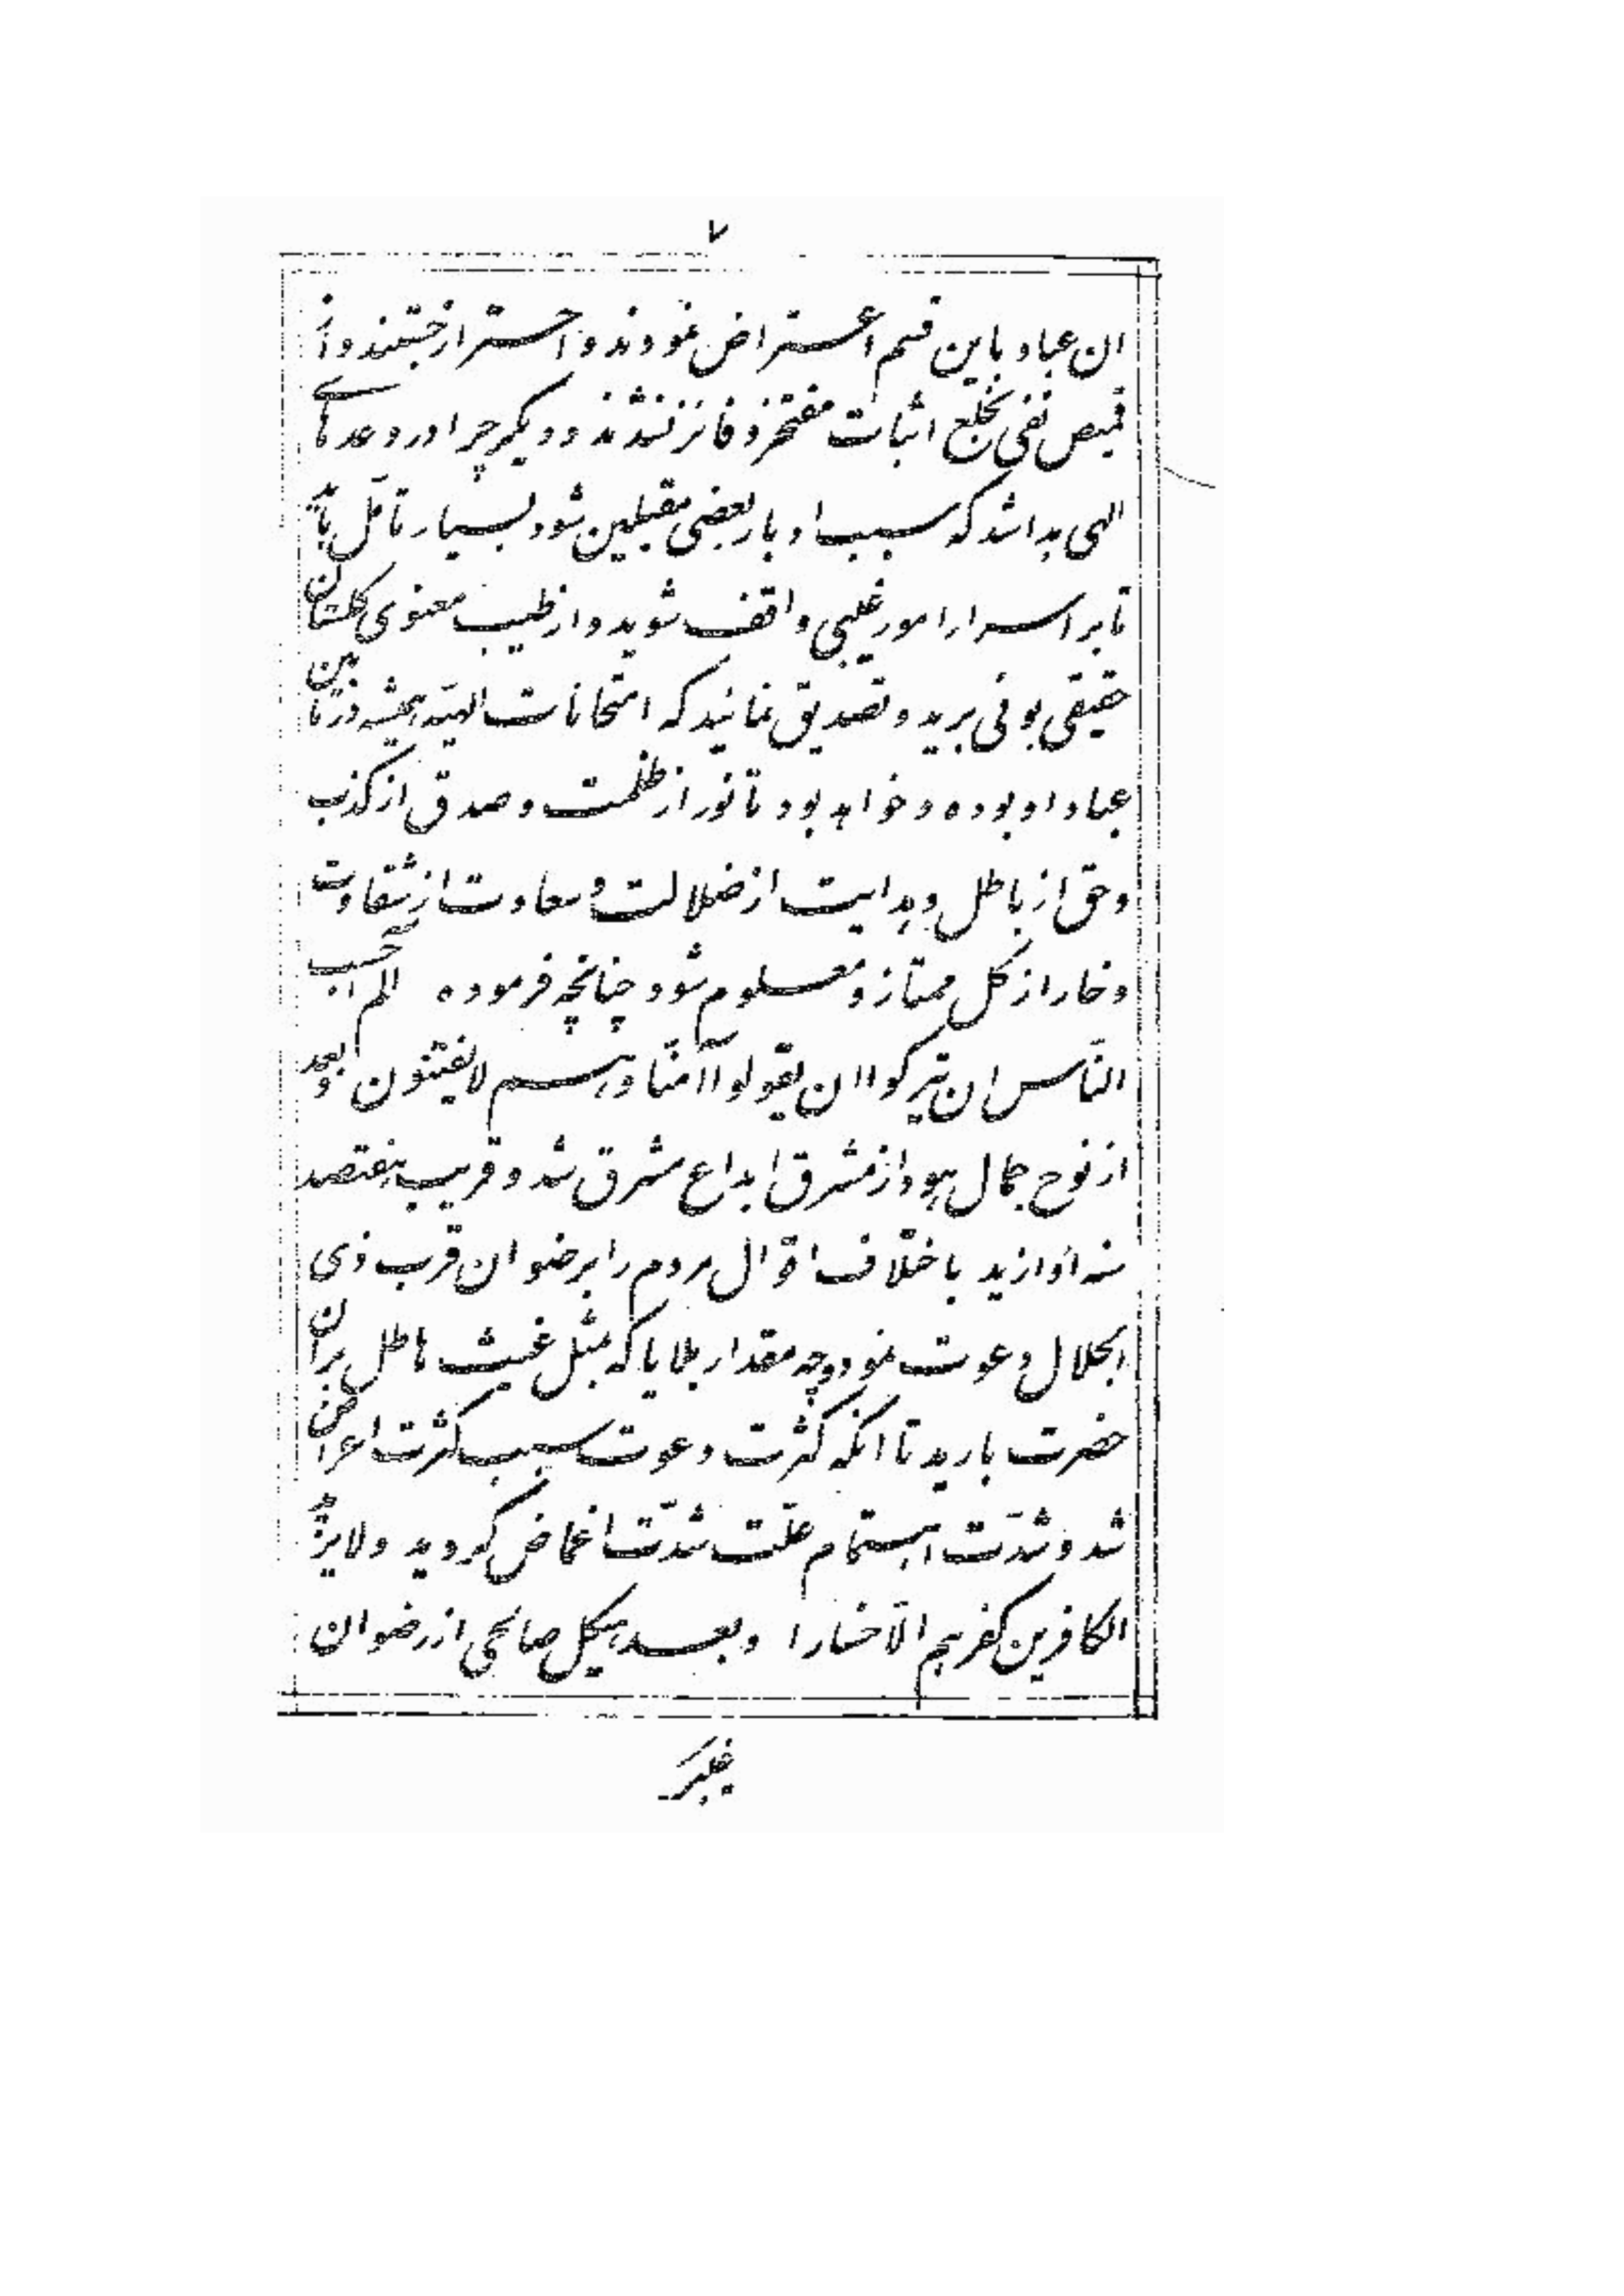 ۷
ان عباد باین قسم اعتراض نمودند و احتراز جستند و از
قمیص نفی بخلع اثبات مفتخر و فائز نشدند و دیگر چرا در وعدهای
الهی بدا شد که سبب ادبار بعضی مقبلین شود بسیار تأمل باید
تا بر اسرار امور غیبی واقف شوید و از طیب معنوی گلستان
حقیقی بوئی برید و تصدیق نمائید که امتحانات الهیّه همیشه در ما بین
عباد او بوده و خواهد بود تا نور از ظلمت و صدق از کذب
و حق از باطل و هدایت از ضلالت و سعادت از شقاوت
و خار از گل ممتاز و معلوم شود چنانچه فرموده الم احسب
النّاس ان یترکوا ان یقولوا آمنّا و هم لا یفتنون و بعد
از نوح جمال هود از مشرق ابداع مشرق شد و قریب هفتصد
سنه او ازید باختلاف اقوال مردم را برضوان قرب ذی
الجلال دعوت نمود و چه مقدار بلایا که بمثل غیث هاطل بر ان
حضرت بارید تا انکه کثرت دعوت سبب کثرت اعراض
شد و شدّت اهتمام علّت شدّت اغماض گردید و لا یزید
الکافرین کفرهم الّا خسارا و بعد هیکل صالحی از رضوان
غیب